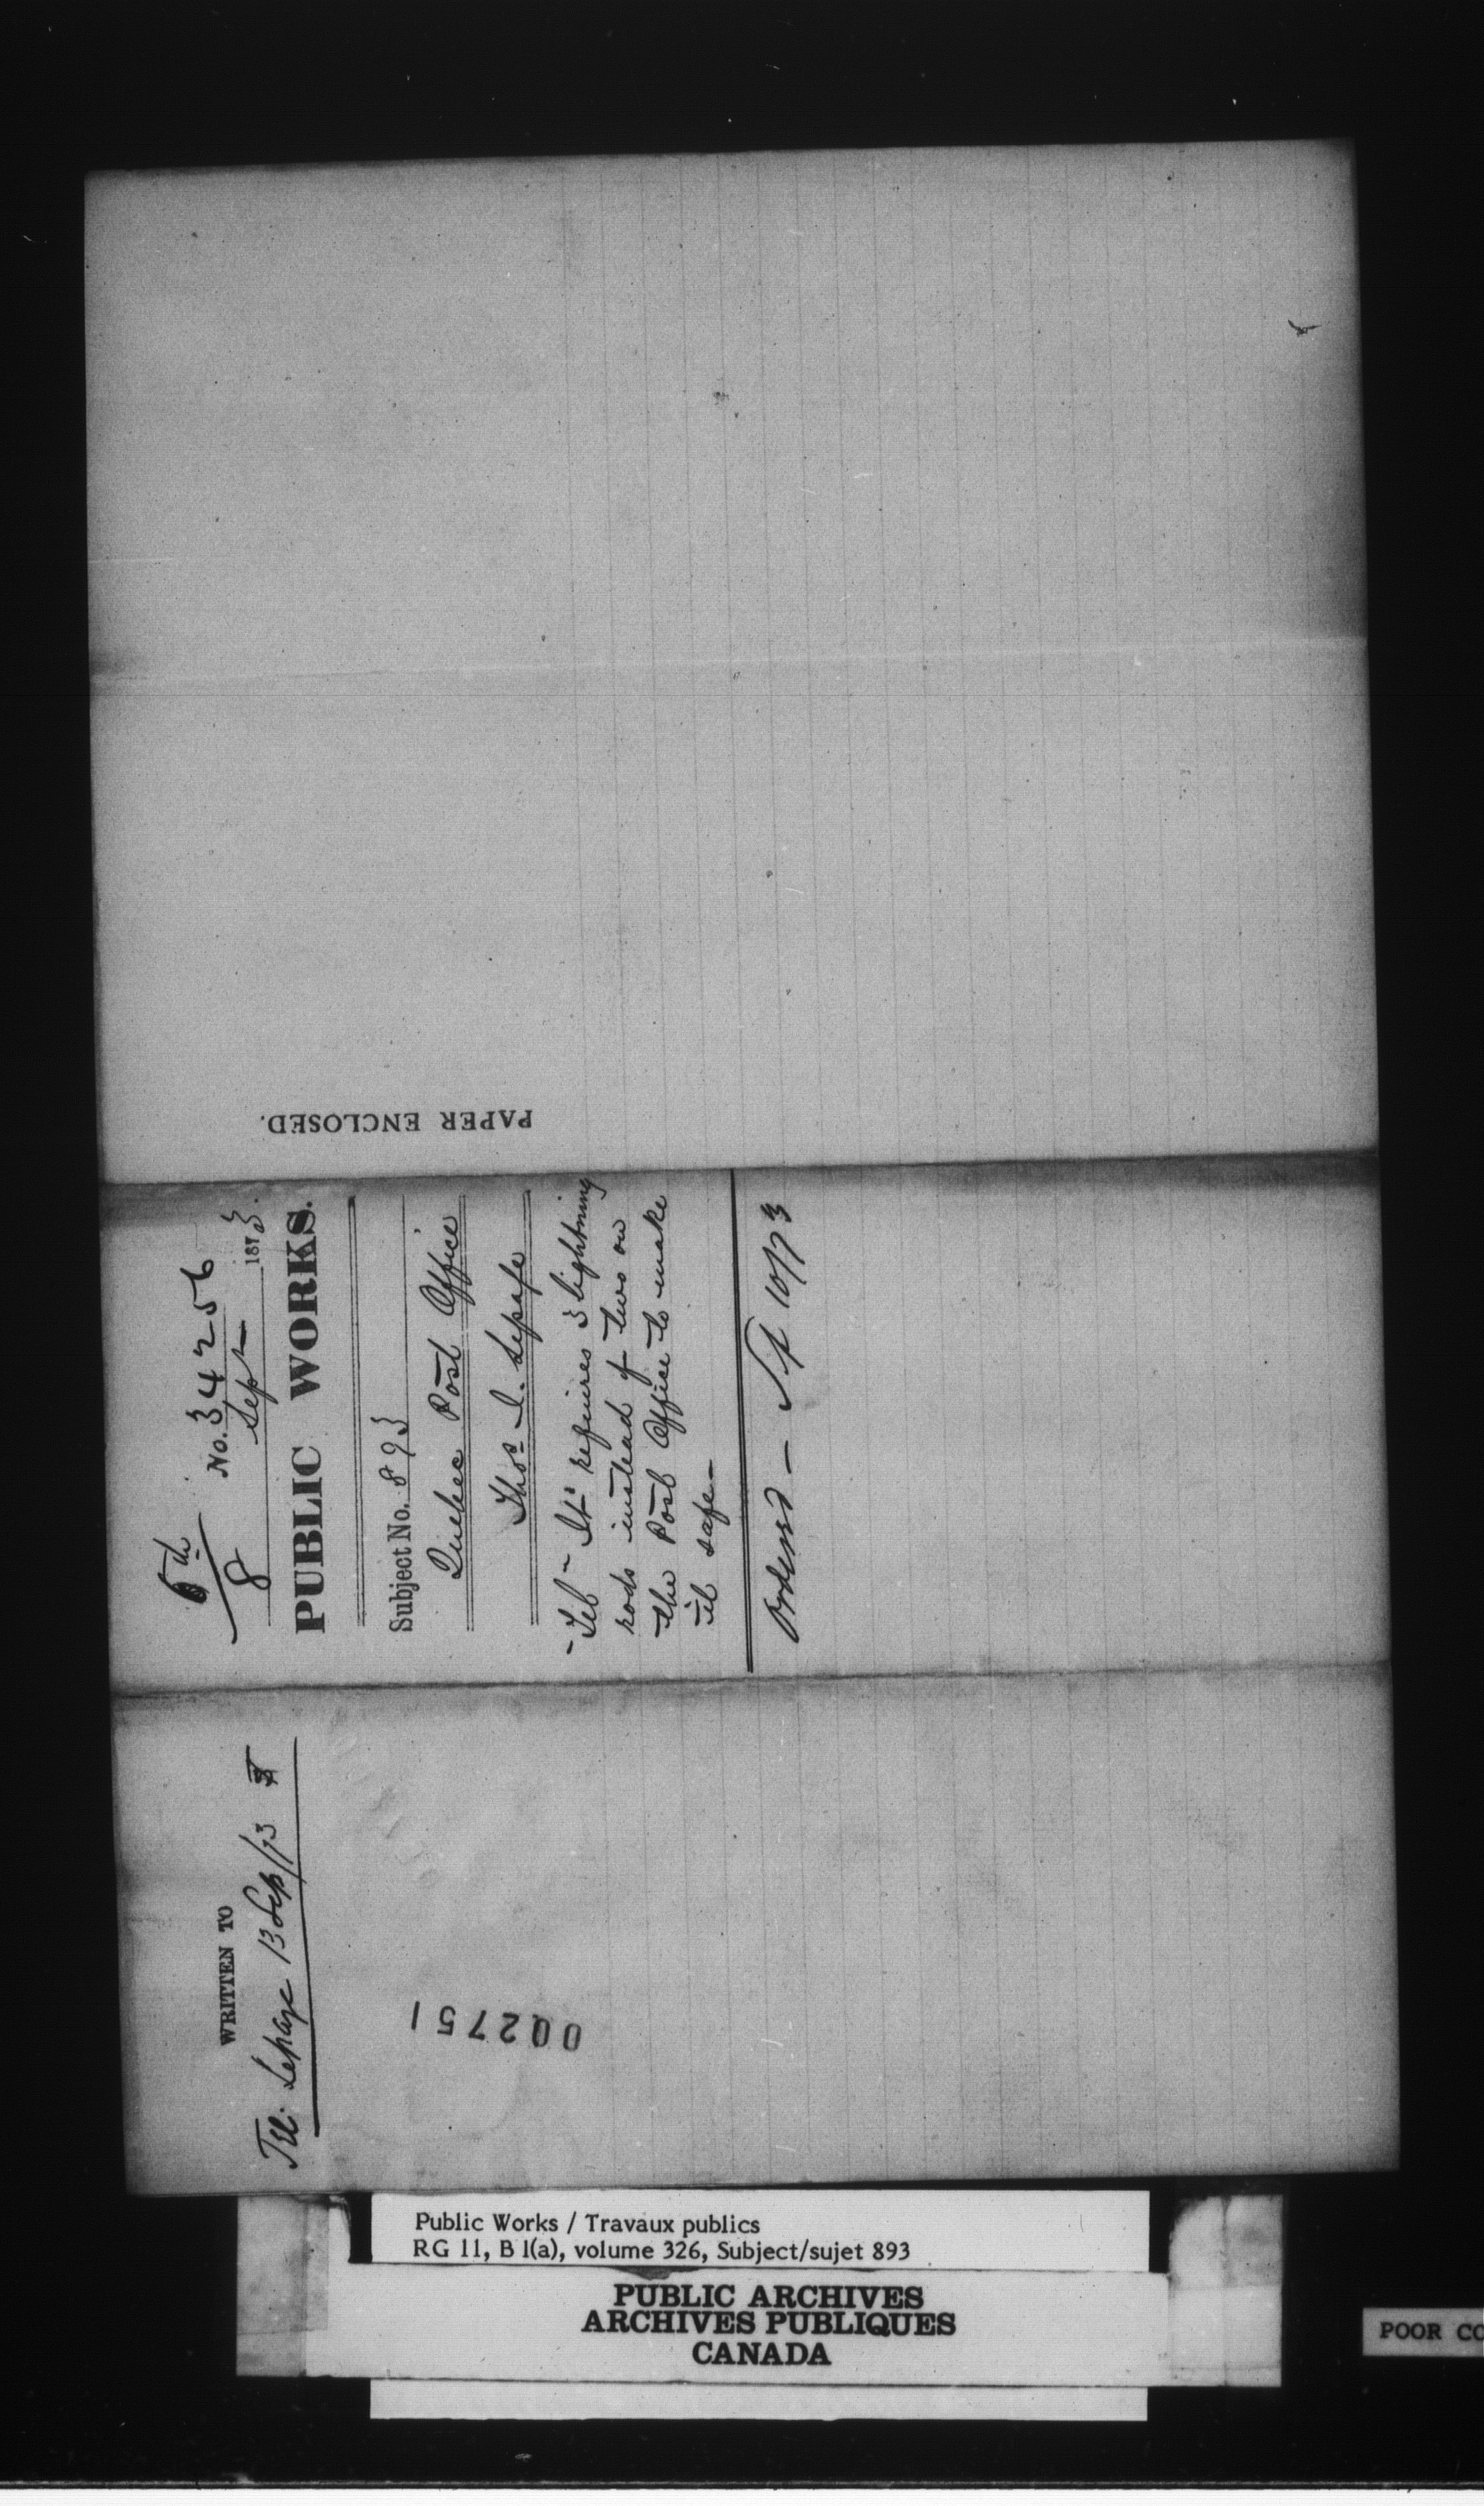 PAPER ENCLOSED.
6th
8
No. 34256
Sept 1873.
PUBLIC WORKS.
Subject No. 893
Quebec Post Office
Thos. I. Lepage
- Tel - It requires 3 lightning
rods instead of two on
the Post Office to make
it safe -
Ordered -
10/73
WRITTEN TO
Tel. Lepage 13 Sep/73
002751
Public Works / Travaux publics
RG 11, B 1(a), volume 326, Subject/sujet 893
PUBLIC ARCHIVES
ARCHIVES PUBLIQUES
CANADA
POOR CO